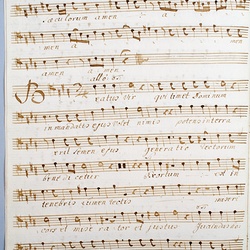 sæculorum amen a
men a
amen a men.
allo:
Beatus vir qui timet Dominum
in mandatis ejus volet nimis potens in terra
erit semen ejus generatio rectorum
bene dicetur Exortum est in
tenebris lumen rectis
cors et mise ra tor et justus